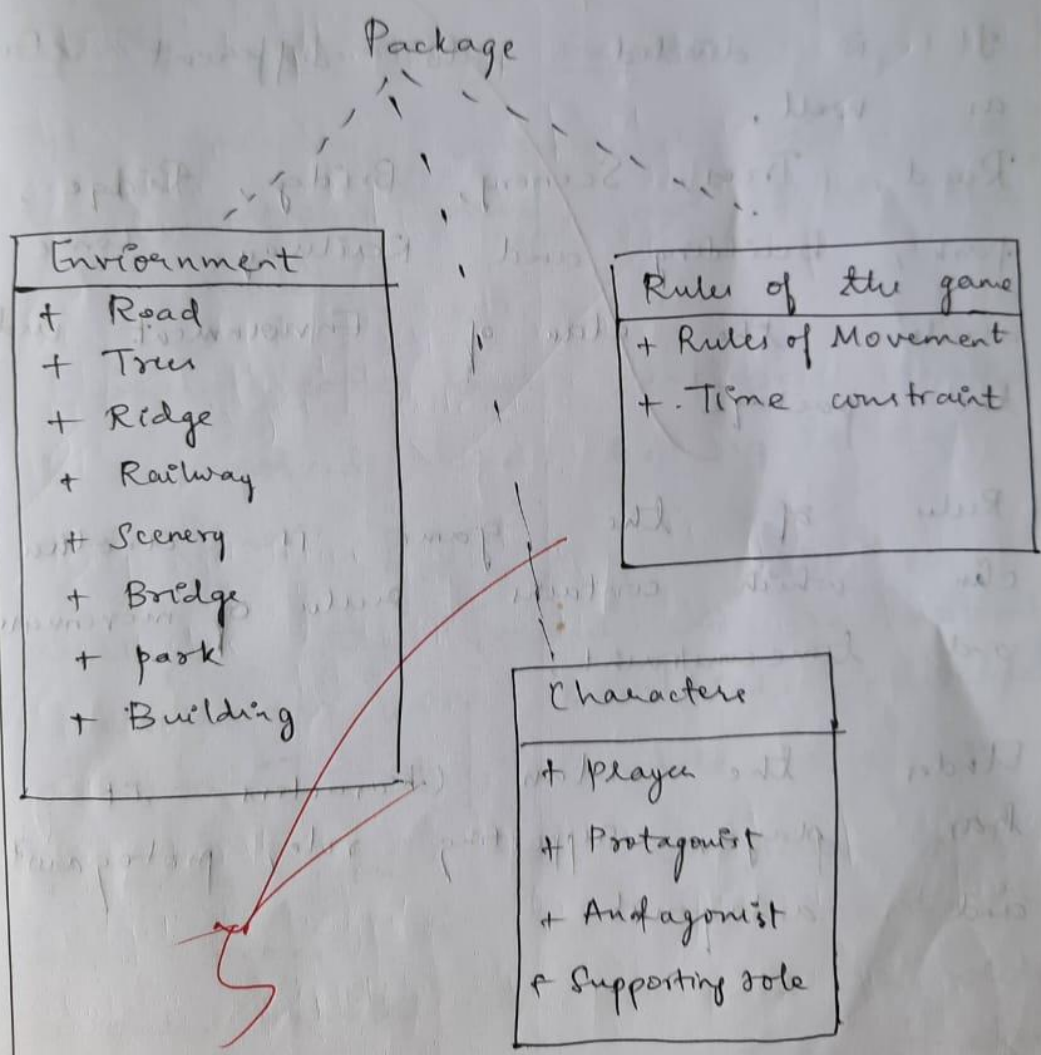 Package
Enviornment
+ Road
+ Trees
+ Ridge
+ Railway
+ Scenery
+ Bridge
+ park
+ Building
Rules of the game
+ Rules of Movement
+ Time constraint
Characters
+ Player
+ Protagonist
+ Antagonist
+ Supporting role